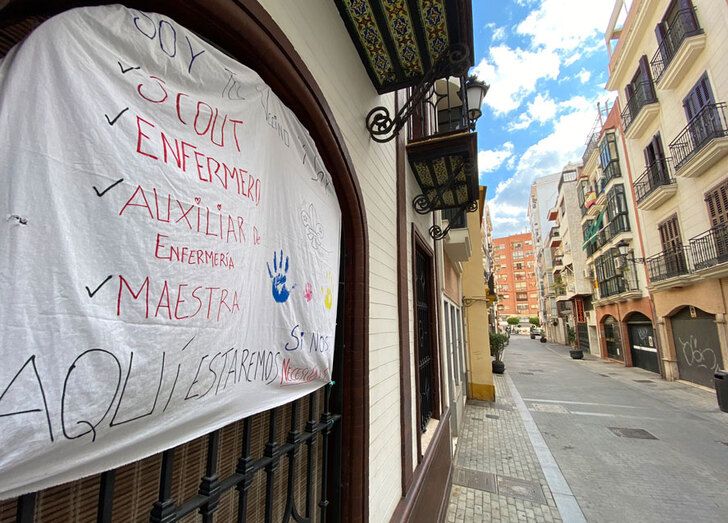 SOY Tu Vecino Y
✓ SCOUT
✓ ENFERMERO
✓ AUXILIAR de
ENFERMERÍA
✓ MAESTRA
Si NOS
AQUÍ ESTAREMOS NECESITAS